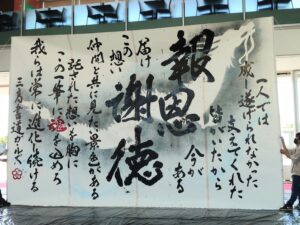 一人では
成し遂げられなかった
支えてくれた
皆がいたから
今がある
報恩
謝徳
届け
この想い
仲間と共に見た景色がある
託された想いを胸に
この一筆に魂を込める
我らは常に進化し続ける